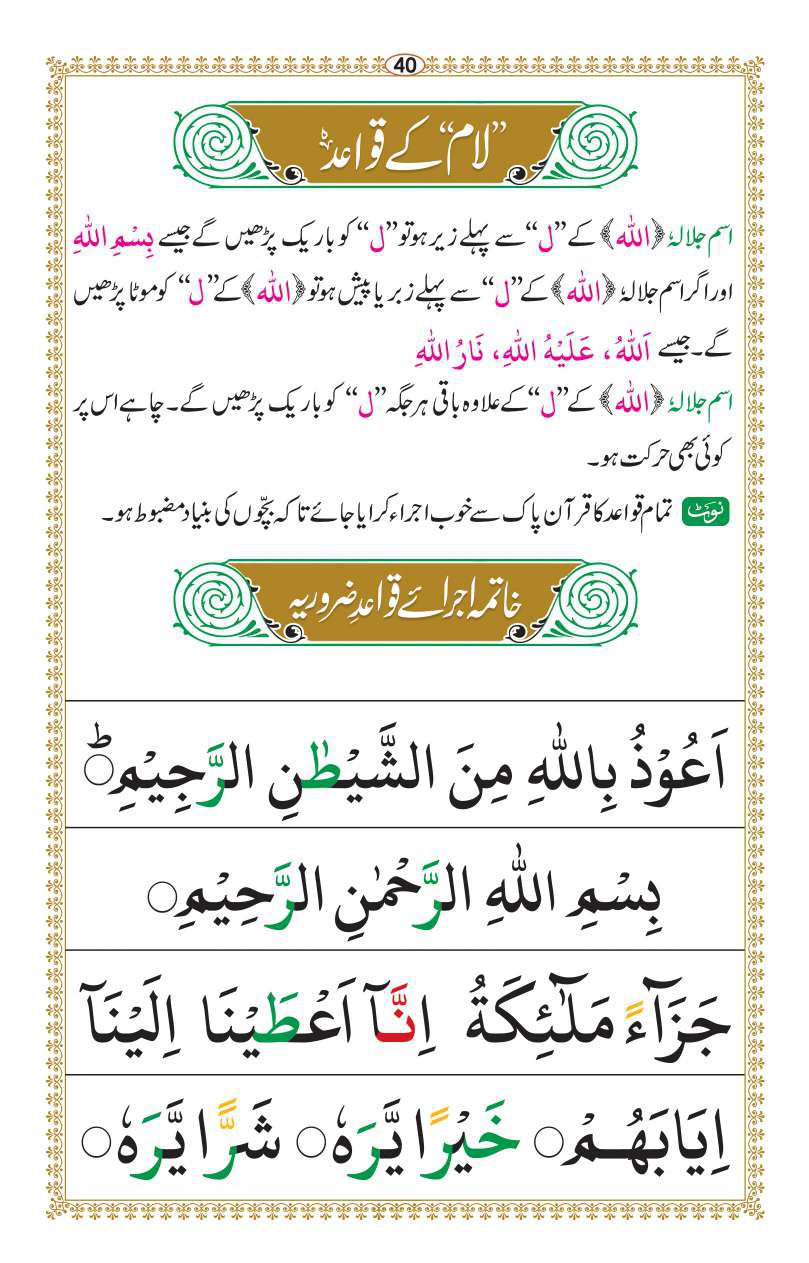 40
”لام“ کے قواعد
اسم جلالۂ ﴿اللہ﴾ کے ”ل“ سے پہلے زیر ہو تو ”ل“ کو باریک پڑھیں گے جیسے بِسْمِ اللهِ
اور اگر اسم جلالۂ ﴿اللہ﴾ کے ”ل“ سے پہلے زبر یا پیش ہو تو ﴿اللہ﴾ کے ”ل“ کو موٹا پڑھیں
گے۔ جیسے اَللهُ ، عَلَيْهُ اللهِ، نَارُ اللهِ
اسم جلالۂ ﴿اللہ﴾ کے ”ل“ کے علاوہ باقی ہر جگہ ”ل“ کو باریک پڑھیں گے۔ چاہے اس پر
کوئی بھی حرکت ہو۔
نوٹ تمام قواعد کا قرآن پاک سے خوب اجراء کرایا جائے تاکہ بچّوں کی بنیاد مضبوط ہو۔
خاتمہ اجرائے قواعدِ ضروریہ
اَعُوْذُ بِاللهِ مِنَ الشَّيْطٰنِ الرَّجِيْمِ ۝ؕ
بِسْمِ اللهِ الرَّحْمٰنِ الرَّحِيْمِ ۝
جَزَآءً مَلٰٓئِكَةُ اِنَّآ اَعْطَيْنَا اِلَيْنَآ
اِيَابَهُمْ ۝ خَيْرًا يَّرَهٗ ۝ شَرًّا يَّرَهٗ ۝